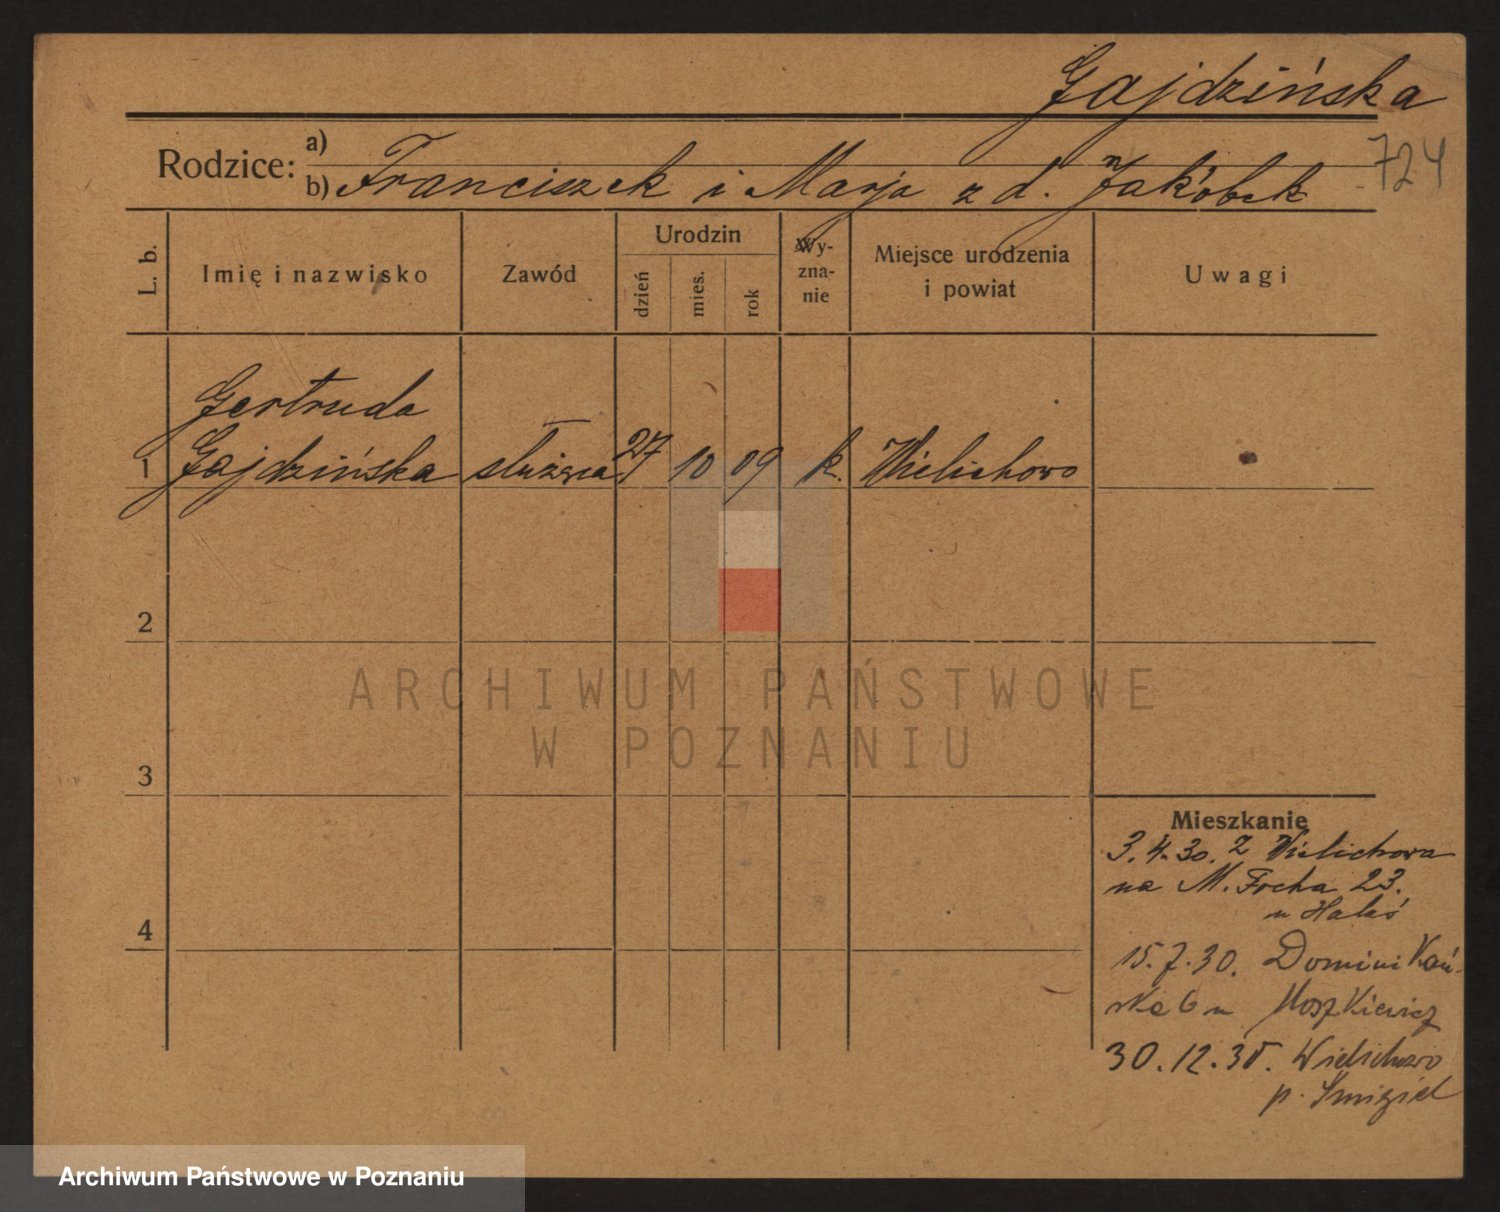 Gajdzińska
724
Rodzice:
a)
b) Franciszek i Marja z d. Jakóbek
L. b.
Imię i nazwisko
Zawód
Urodzin
dzień
mies.
rok
Wy-
zna-
nie
Miejsce urodzenia
i powiat
Uwagi
Gertruda
1 Gajdzińska służąca 27 10 09 k. Wielichowo
2
3
4
Mieszkanie
3.4.30. z Wielichowa
na M. Focha 23.
u
15.7.30. Dominikań-
ska 6 u Moszkiewicz
30.12.30. Wielichowo
p. Śmigiel
ARCHIWUM PAŃSTWOWE
W POZNANIU
Archiwum Państwowe w Poznaniu